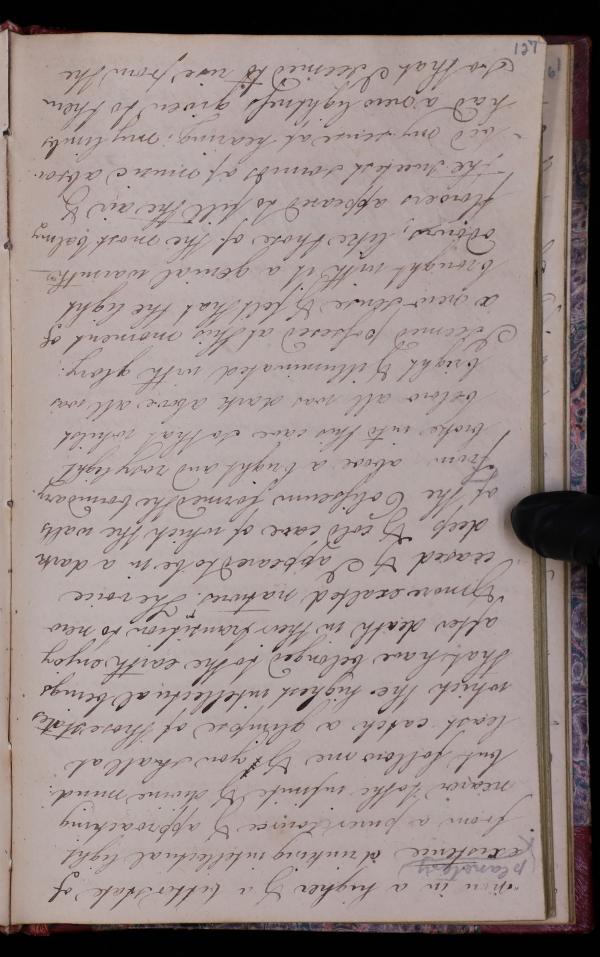 127
-tion in a higher & a better state of
(planetary)
existence drinking intellectual light
from a purer source & approaching
nearer to the infinite & divine mind.
but follow me & you shall at
least catch a glimpse of those states
which the highest intellectual beings
that have belonged to the earth enjoy
after death in their transition to new
& more exalted natures. The voice
ceased & I appeared to be in a dark
deep & cold cave of which the walls
of the Colyseum formed the boundary.
From above a bright and rosy light
broke into this cave so that whilst
below all was dark above all was
bright & illuminated with glory.
I seemed possesed at this moment of
a new sense & felt that the light
brought with it a genial warmth
odours, like those of the most balmy
flowers appeard to fill the air &
the sweetest sounds of music absor-
-bed my sense of hearing; my limbs
had a new lightness given to them
so that I seemed to rise from the